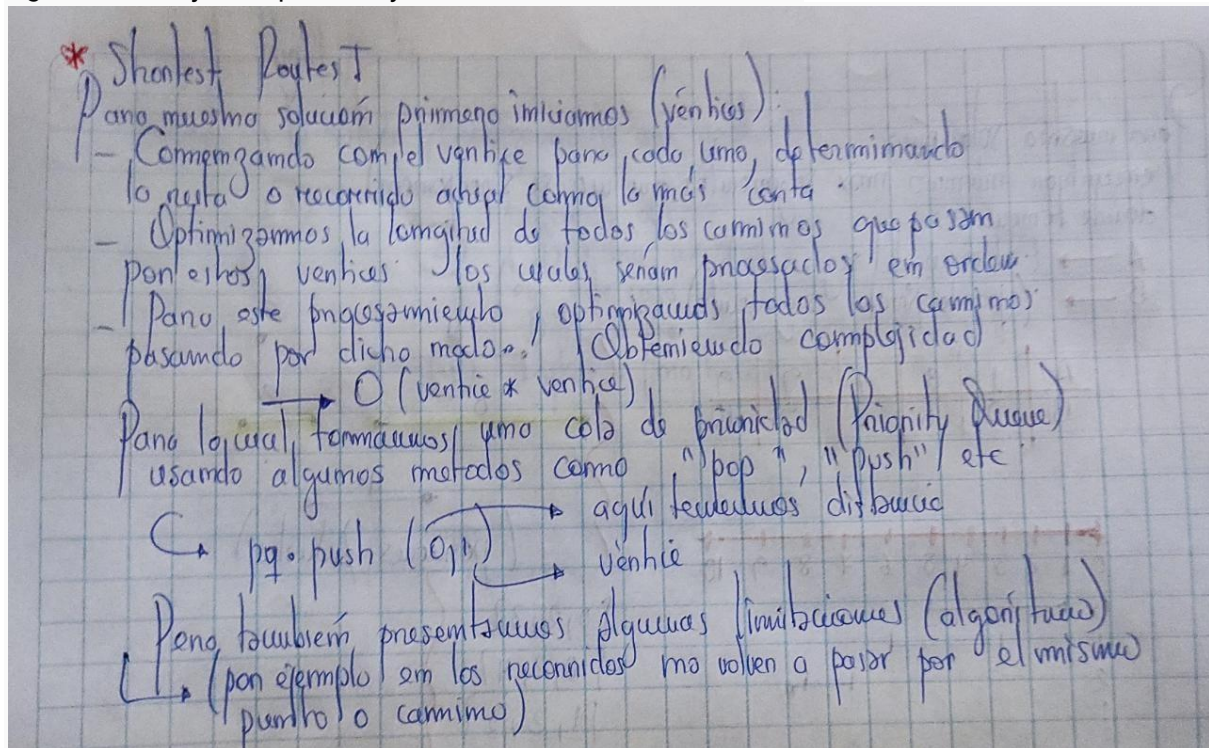 * Shortest Routes I
Para nuestra solución primero iniciamos (vértices)
- Comenzando con el vértice para cada uno, determinando
la ruta o recorrido actual como la más corta.
- Optimizamos la longitud de todos los caminos que pasan
por estos vértices los cuales serán procesados en orden.
- Para este procesamiento, optimizamos todos los caminos
pasando por dicho nodo. Obteniendo complejidad
→ O (vértice * vértice)
Para lo cual, formamos una cola de prioridad (Priority Queue)
usando algunos metodos como "pop", "push" etc
aquí tendremos distancia
↳ pq.push (0,1)
vértice
Pero también presentamos algunas limitaciones (algoritmo)
↳ (por ejemplo en los recorridos no volver a pasar por el mismo
punto o camino)